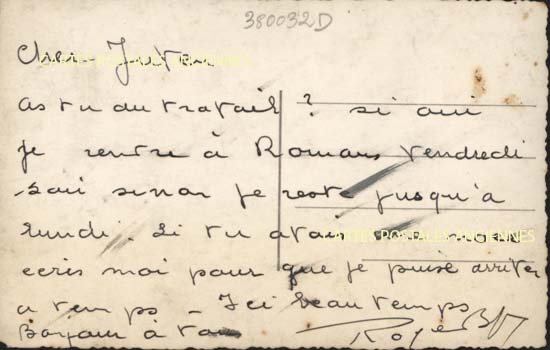 380032D
Cher
CARTES POSTALES ANCIENNES
as tu du travail ? si oui
je rentre à Romans vendredi
soir sinon je reste jusqu'à
lundi. Si tu
CARTES POSTALES ANCIENNES
ecris moi pour que je puise arriver
a temps _ Ici beau temps
Bonjour à
Roger